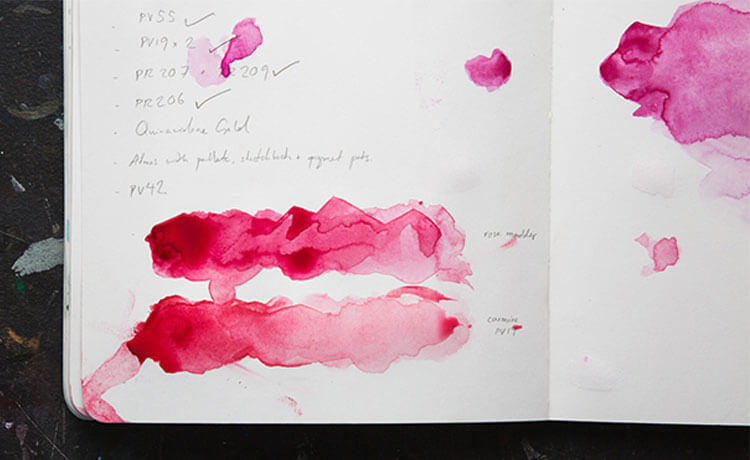 PV55 ✓
- PV19 x 2 ✓
- PR207 · PR209 ✓
- PR206 ✓
- Quinacridone Gold
- with pallete, sketchbook + pigment pots.
- PV42
rose madder
carmine
PV19